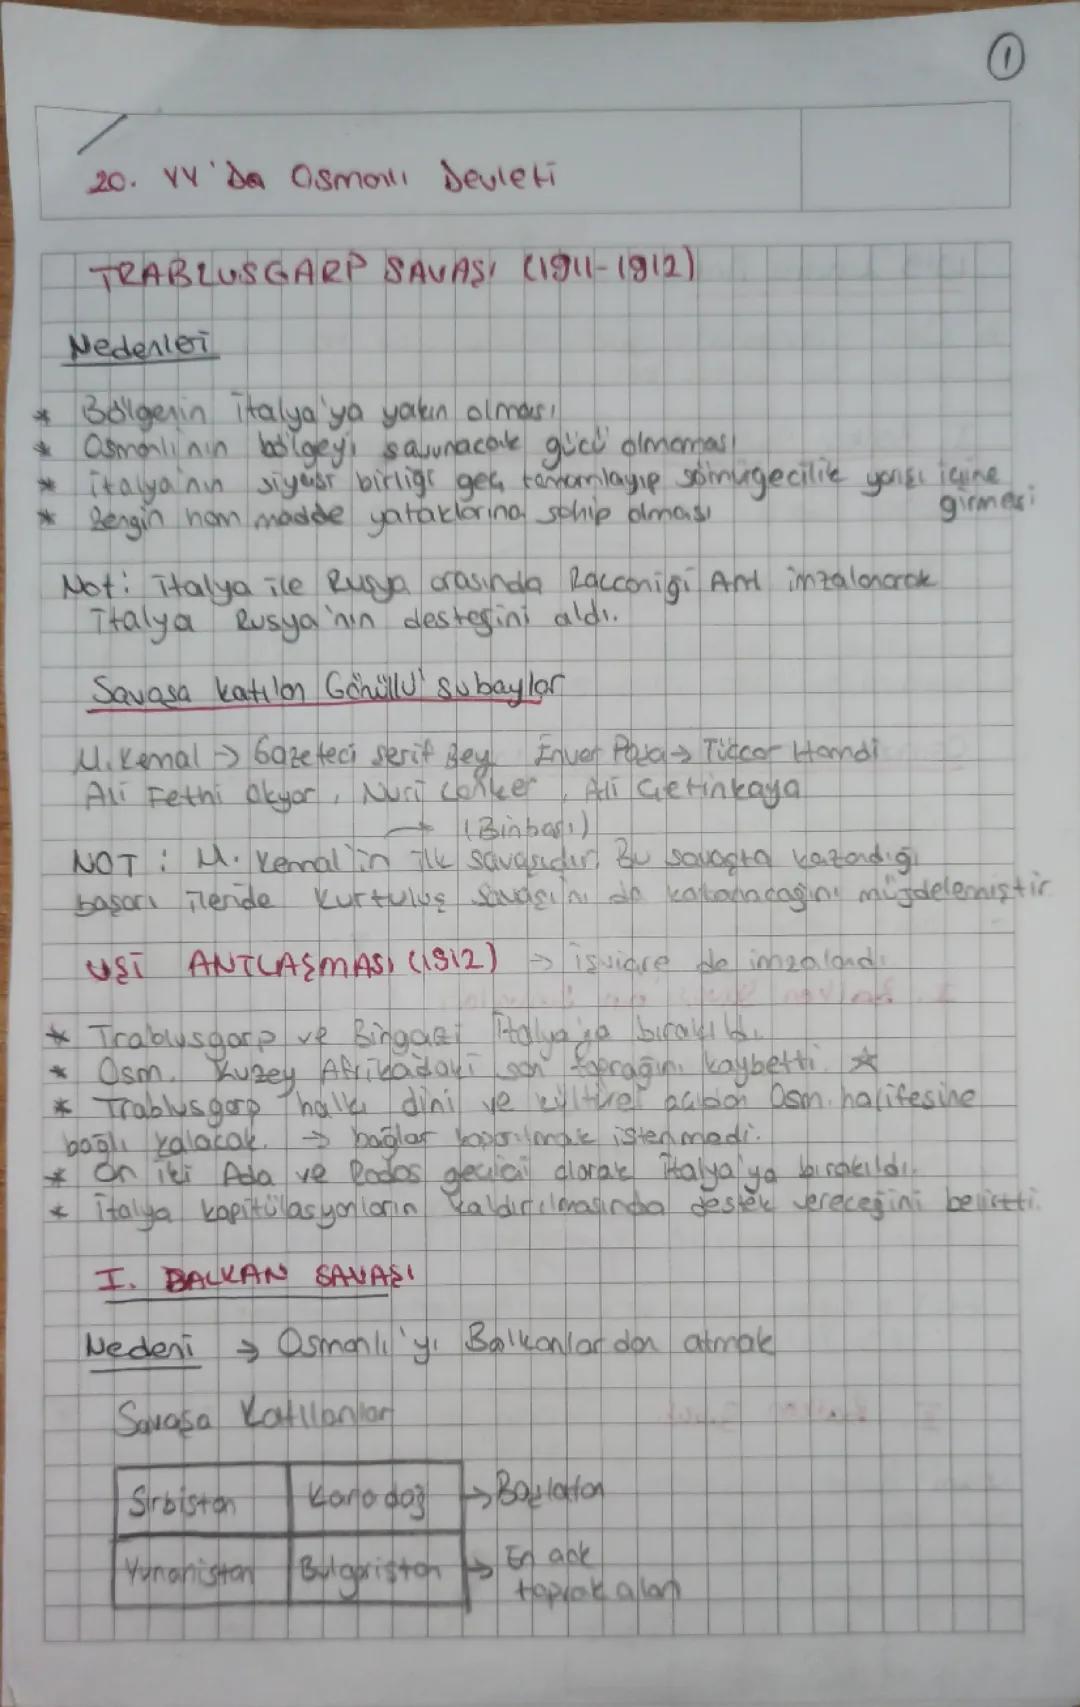 1
20. YY'Da Osmanlı Devleti
TRABLUSGARP SAVAŞI (1911-1912)
Nedenleri
* Bölgenin İtalya'ya yakın olması
* Osmanlı'nın bölgeyi savunacak gücü olmaması
* İtalya'nın siyasi birliği geç tamamlayıp sömürgecilik yarışı içine girmesi
* Zengin ham madde yataklarına sahip olması
Not: İtalya ile Rusya arasında Racconigi Ant imzalanarak
İtalya Rusya'nın desteğini aldı.
Savaşa katılan Gönüllü subaylar
M. Kemal → Gazeteci Şerif Bey Enver Paşa → Tüccar Hamdi
Ali Fethi Okyar, Nuri Conker, Ali Çetinkaya
→ (Binbaşı)
NOT: M. Kemal'in ilk savaşıdır. Bu savaşta kazandığı
başarı ileride Kurtuluş Savaşı'nı da kazanacağını müjdelemiştir
UŞİ ANTLAŞMASI (1912) → İsviçre de imzalandı
* Trablusgarp ve Bingazi İtalya'ya bırakıldı.
* Osm. Kuzey Afrikadaki son toprağını kaybetti. ☆
* Trablusgarp halkı dini ve kültürel açıdan Osm. halifesine
bağlı kalacak. → bağlar koparılmak istenmedi.
* On iki Ada ve Rodos geçici olarak İtalya'ya bırakıldı.
* İtalya kapitülasyonların kaldırılmasında destek vereceğini belirtti.
I. BALKAN SAVAŞI
Nedeni → Osmanlı'yı Balkanlardan atmak
Savaşa Katılanlar
Sırbistan Karadağ → Başlatan
Yunanistan Bulgaristan → En çok
toprak alan